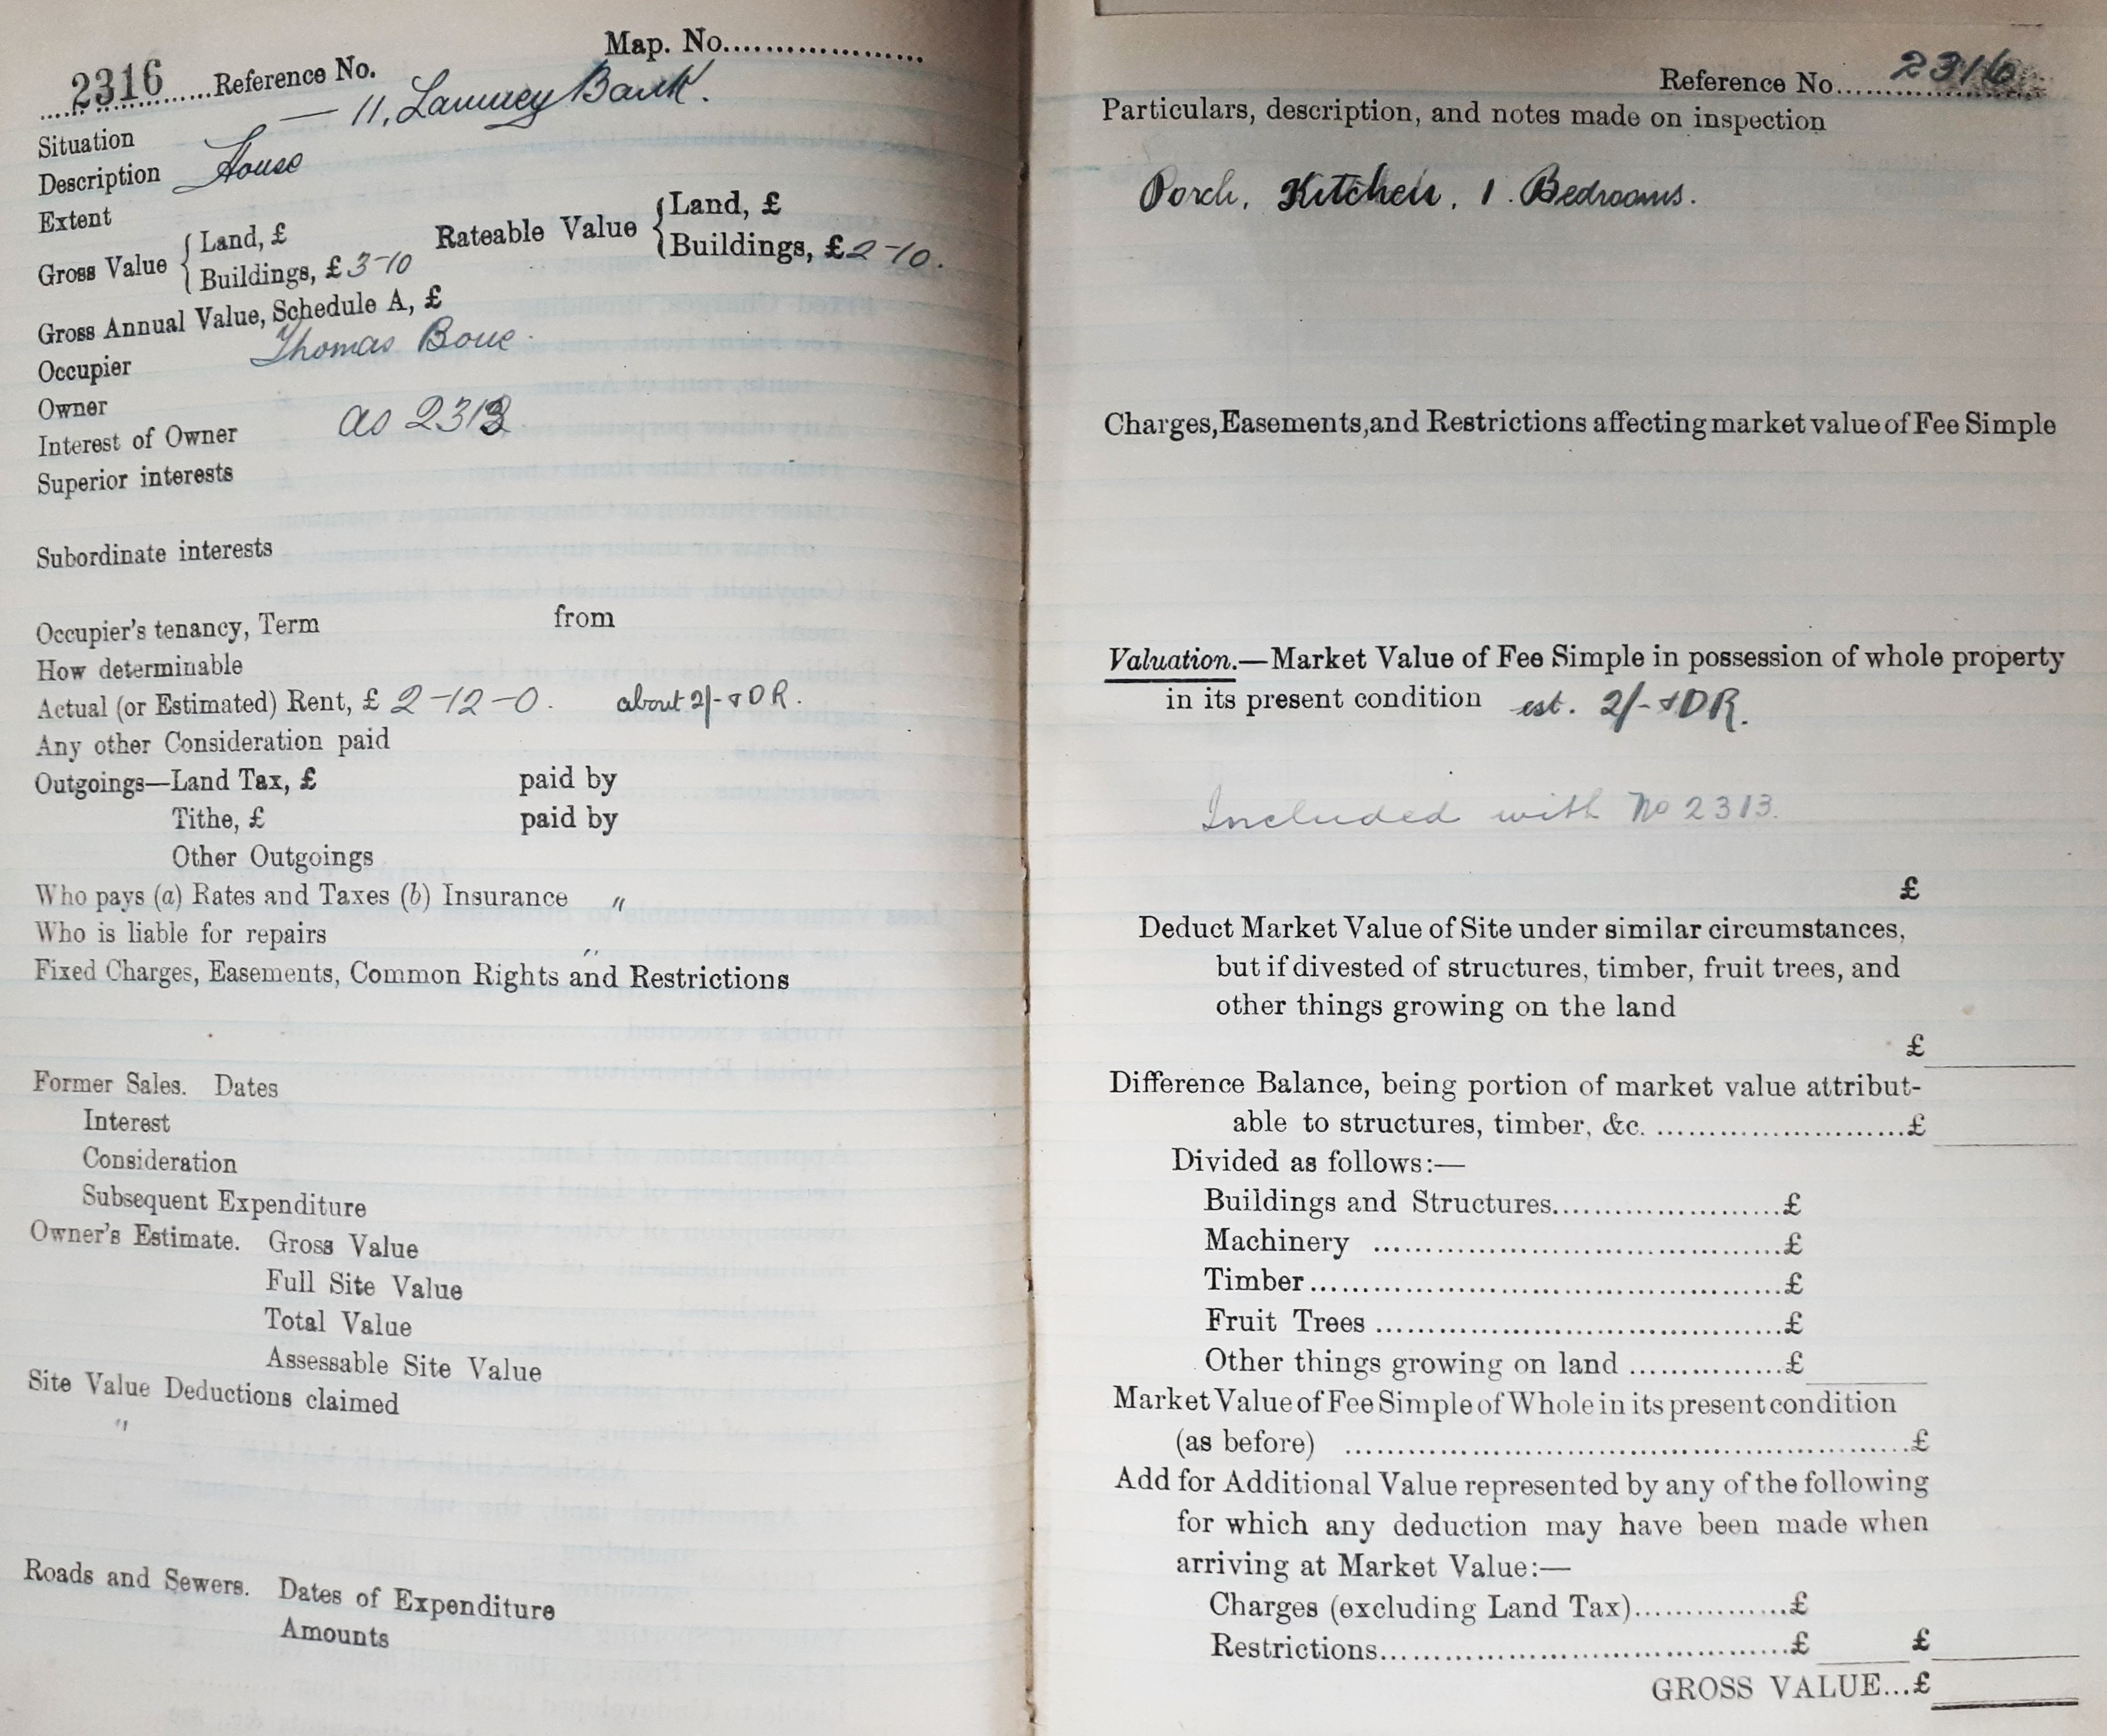 Map. No....................
2316 Reference No.
Situation — 11, Lanney Bank.
Description House
Extent
Gross Value { Land, £ Rateable Value { Land, £
Buildings, £ 3-10 Buildings, £ 2-10.
Gross Annual Value, Schedule A, £
Occupier Thomas Bone.
Owner
Interest of Owner as 2313
Superior interests
Subordinate interests
Occupier's tenancy, Term from
How determinable
Actual (or Estimated) Rent, £ 2-12-0. about 2/- & DR.
Any other Consideration paid
Outgoings—Land Tax, £ paid by
Tithe, £ paid by
Other Outgoings
Who pays (a) Rates and Taxes (b) Insurance "
Who is liable for repairs "
Fixed Charges, Easements, Common Rights and Restrictions
Former Sales. Dates
Interest
Consideration
Subsequent Expenditure
Owner's Estimate. Gross Value
Full Site Value
Total Value
Assessable Site Value
Site Value Deductions claimed
"
Roads and Sewers. Dates of Expenditure
Amounts
Reference No. 2316
Particulars, description, and notes made on inspection
Porch, Kitchen, 1. Bedrooms.
Charges, Easements, and Restrictions affecting market value of Fee Simple
Valuation.—Market Value of Fee Simple in possession of whole property
in its present condition est. 2/- & DR.
Included with No 2313.
£
Deduct Market Value of Site under similar circumstances,
but if divested of structures, timber, fruit trees, and
other things growing on the land
£
Difference Balance, being portion of market value attribut-
able to structures, timber, &c. ........................£
Divided as follows:—
Buildings and Structures......................£
Machinery ......................................£
Timber.............................................£
Fruit Trees ......................................£
Other things growing on land ...............£
Market Value of Fee Simple of Whole in its present condition
(as before) ......................................................£
Add for Additional Value represented by any of the following
for which any deduction may have been made when
arriving at Market Value:—
Charges (excluding Land Tax)...............£
Restrictions.......................................£ £
GROSS VALUE...£